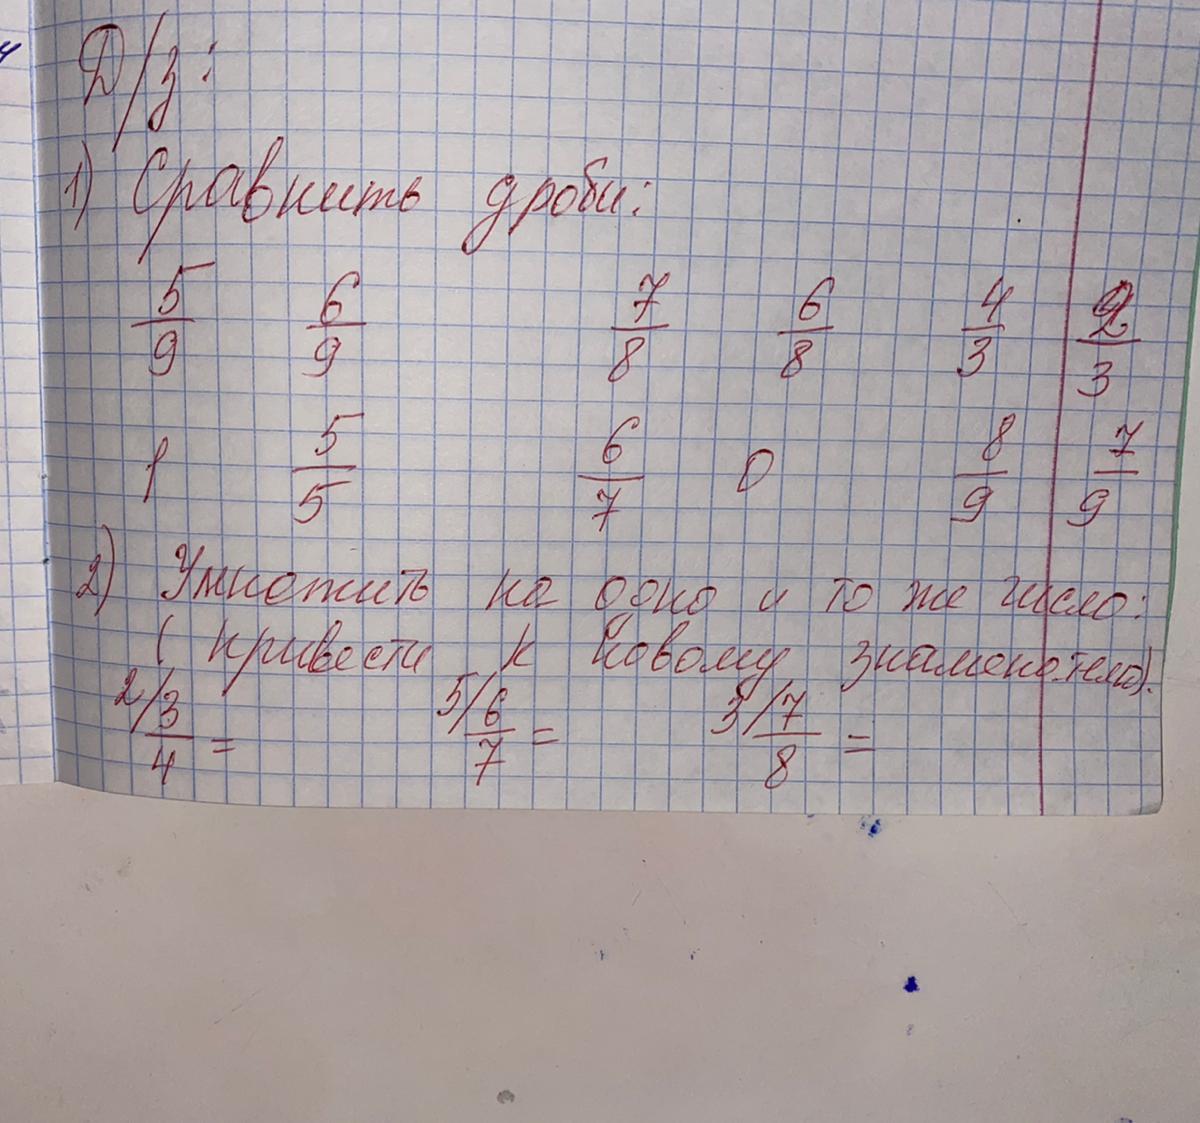 Д/з:
1) Сравнить дроби:
5/9 6/9 7/8 6/8 4/3 2/3
1 5/5 6/7 0 8/9 7/9
2) Умножить на одно и то же число:
( привести к новому знаменателю).
2/ 3/4 = 5/ 6/7 = 3/ 7/8 =